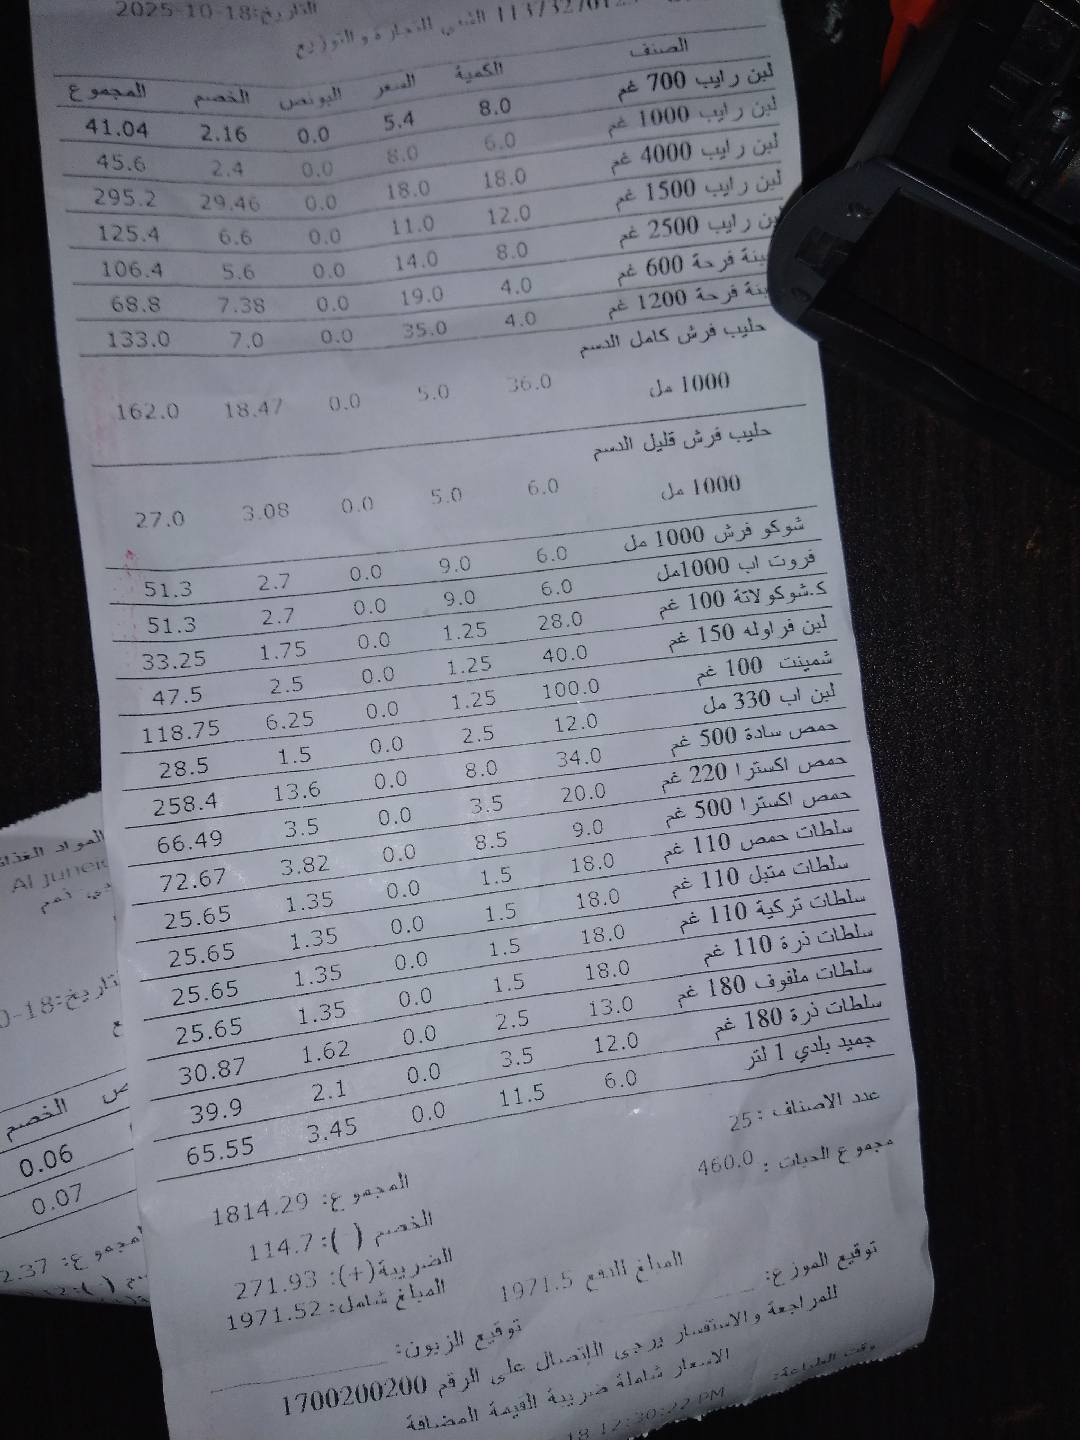 التاريخ:18-10-2025
الثني للتجارة والتوزيع
الصنف الكمية السعر البونص الخصم المجموع
لبن رايب 700 غم 8.0 5.4 0.0 2.16 41.04
لبن رايب 1000 غم 6.0 8.0 0.0 2.4 45.6
لبن رايب 4000 غم 18.0 18.0 0.0 29.46 295.2
لبن رايب 1500 غم 12.0 11.0 0.0 6.6 125.4
لبن رايب 2500 غم 8.0 14.0 0.0 5.6 106.4
فرحة 600 غم 4.0 19.0 0.0 7.38 68.8
فرحة 1200 غم 4.0 35.0 0.0 7.0 133.0
حليب فرش كامل الدسم
1000 مل 36.0 5.0 0.0 18.47 162.0
حليب فرش قليل الدسم
1000 مل 6.0 5.0 0.0 3.08 27.0
شوكو فرش 1000 مل 6.0 9.0 0.0 2.7 51.3
فروت اب 1000مل 6.0 9.0 0.0 2.7 51.3
ك.شوكولاتة 100 غم 28.0 1.25 0.0 1.75 33.25
لبن فراوله 150 غم 40.0 1.25 0.0 2.5 47.5
شمينت 100 غم 100.0 1.25 0.0 6.25 118.75
لبن اب 330 مل 12.0 2.5 0.0 1.5 28.5
حمص سادة 500 غم 34.0 8.0 0.0 13.6 258.4
حمص اكسترا 220 غم 20.0 3.5 0.0 3.5 66.49
حمص اكسترا 500 غم 9.0 8.5 0.0 3.82 72.67
سلطات حمص 110 غم 18.0 1.5 0.0 1.35 25.65
سلطات متبل 110 غم 18.0 1.5 0.0 1.35 25.65
سلطات تركية 110 غم 18.0 1.5 0.0 1.35 25.65
سلطات ذرة 110 غم 18.0 1.5 0.0 1.35 25.65
سلطات ملفوف 180 غم 13.0 2.5 0.0 1.62 30.87
سلطات ذرة 180 غم 12.0 3.5 0.0 2.1 39.9
جميد بلدي 1 لتر 6.0 11.5 0.0 3.45 65.55
عدد الاصناف :25
مجموع الحبات : 460.0
المجموع: 1814.29
الخصم (-): 114.7
الضريبة(+): 271.93
المبلغ شامل: 1971.52
المبلغ للدفع 1971.5
توقيع الموزع:
توقيع الزبون:
للمراجعة والاستفسار يرجى الإتصال على الرقم 1700200200
الاسعار شاملة ضريبة القيمة المضافة
وقت الطباعة:
18 12:30:22 PM
المواد الغذائ
Al Juneid
الخصم
0.06
0.07